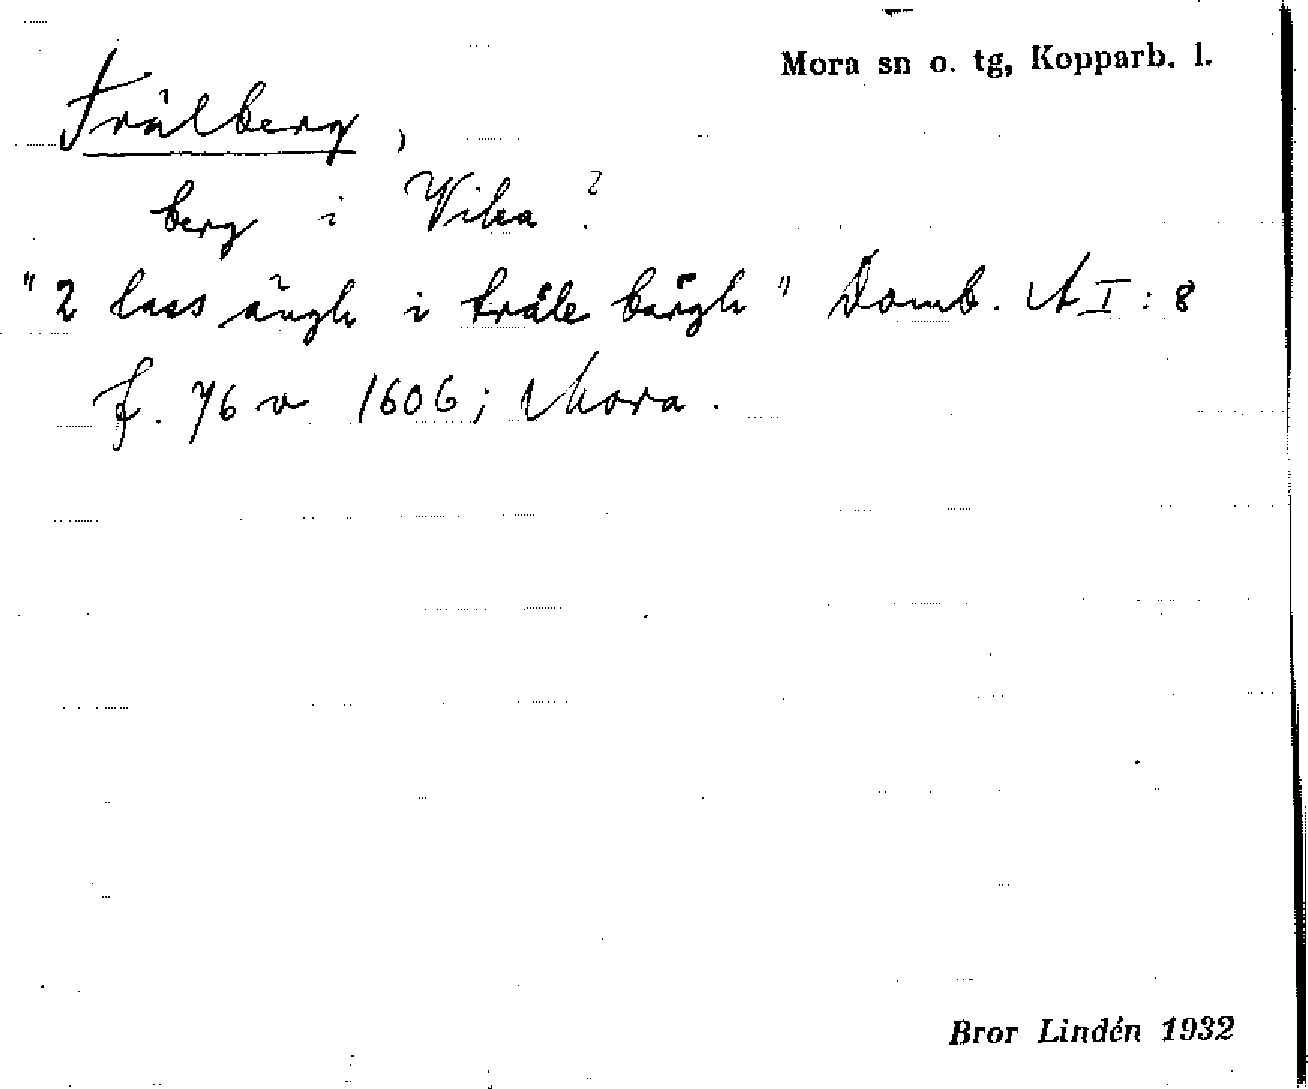 Mora sn o. tg, Kopparb. l.
Trålberg,
berg i Vika?
"2 lass ängh i tråle bärgh" Domb. A I : 8
f. 76 v 1606; Mora.
Bror Lindén 1932